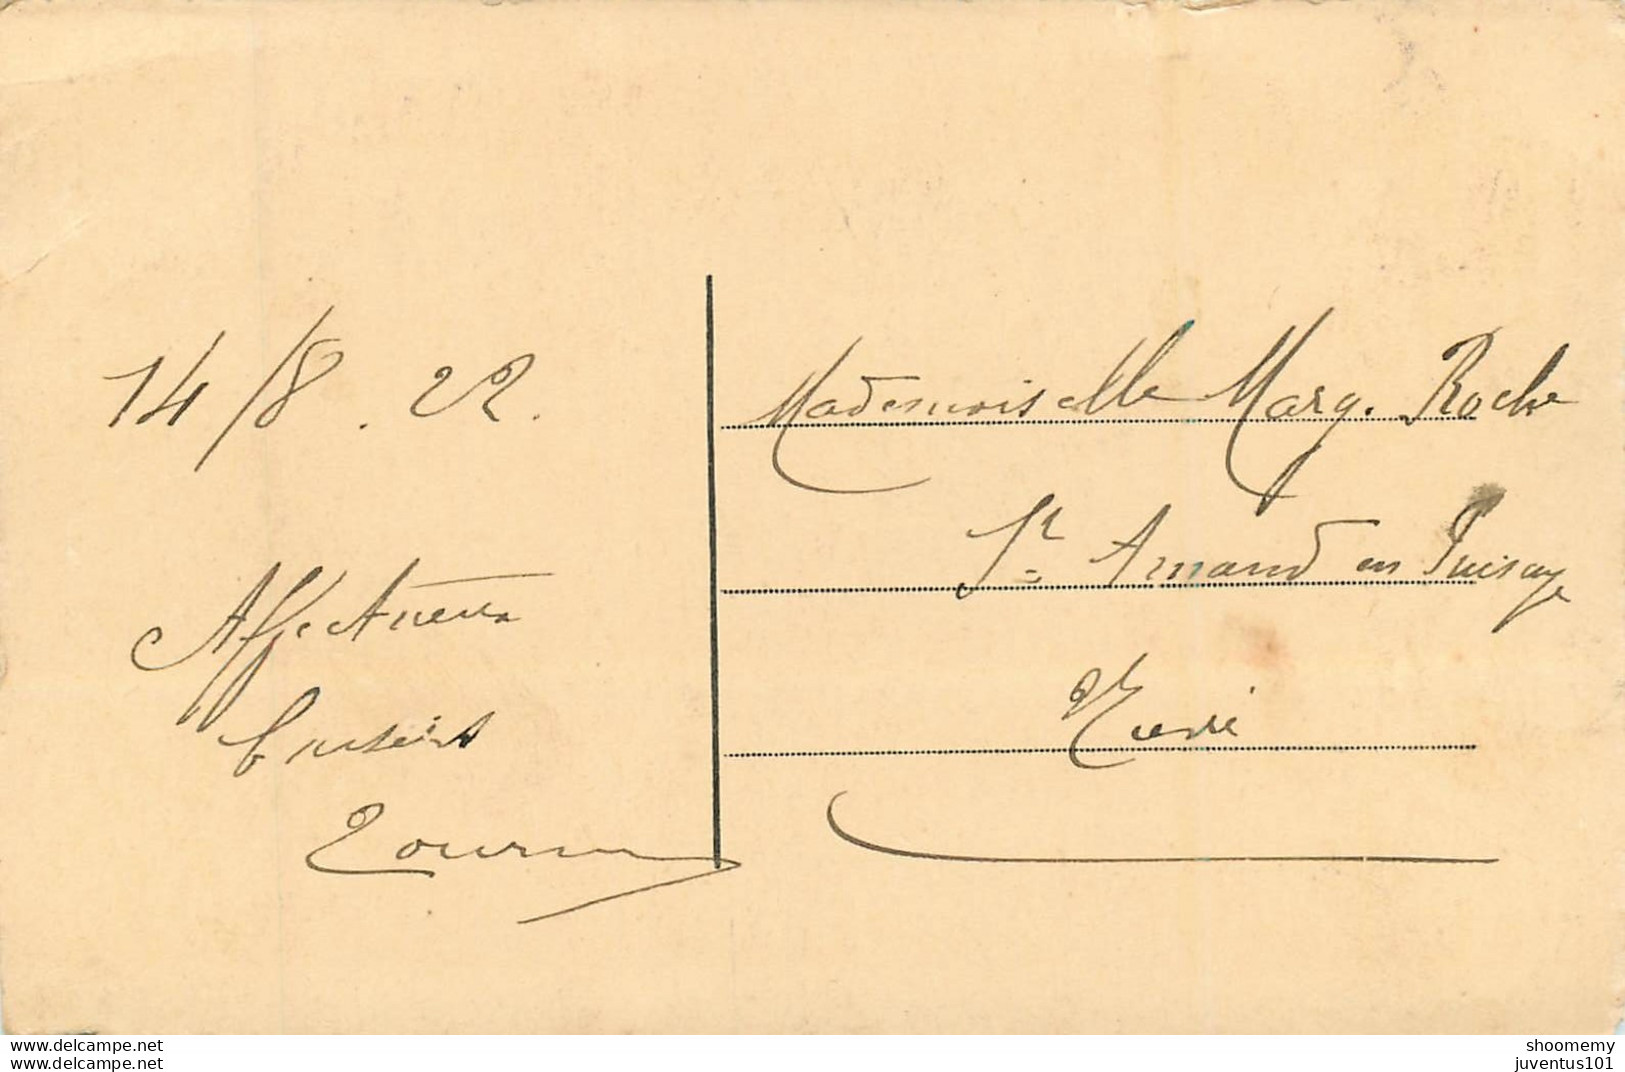 14/8. 22.
Affectueux
baisers
Mademoiselle Marg. Roche
St Amand en Puisaye
Nièvre
www.delcampe.net
www.delcampe.net
shoomemy
juventus101